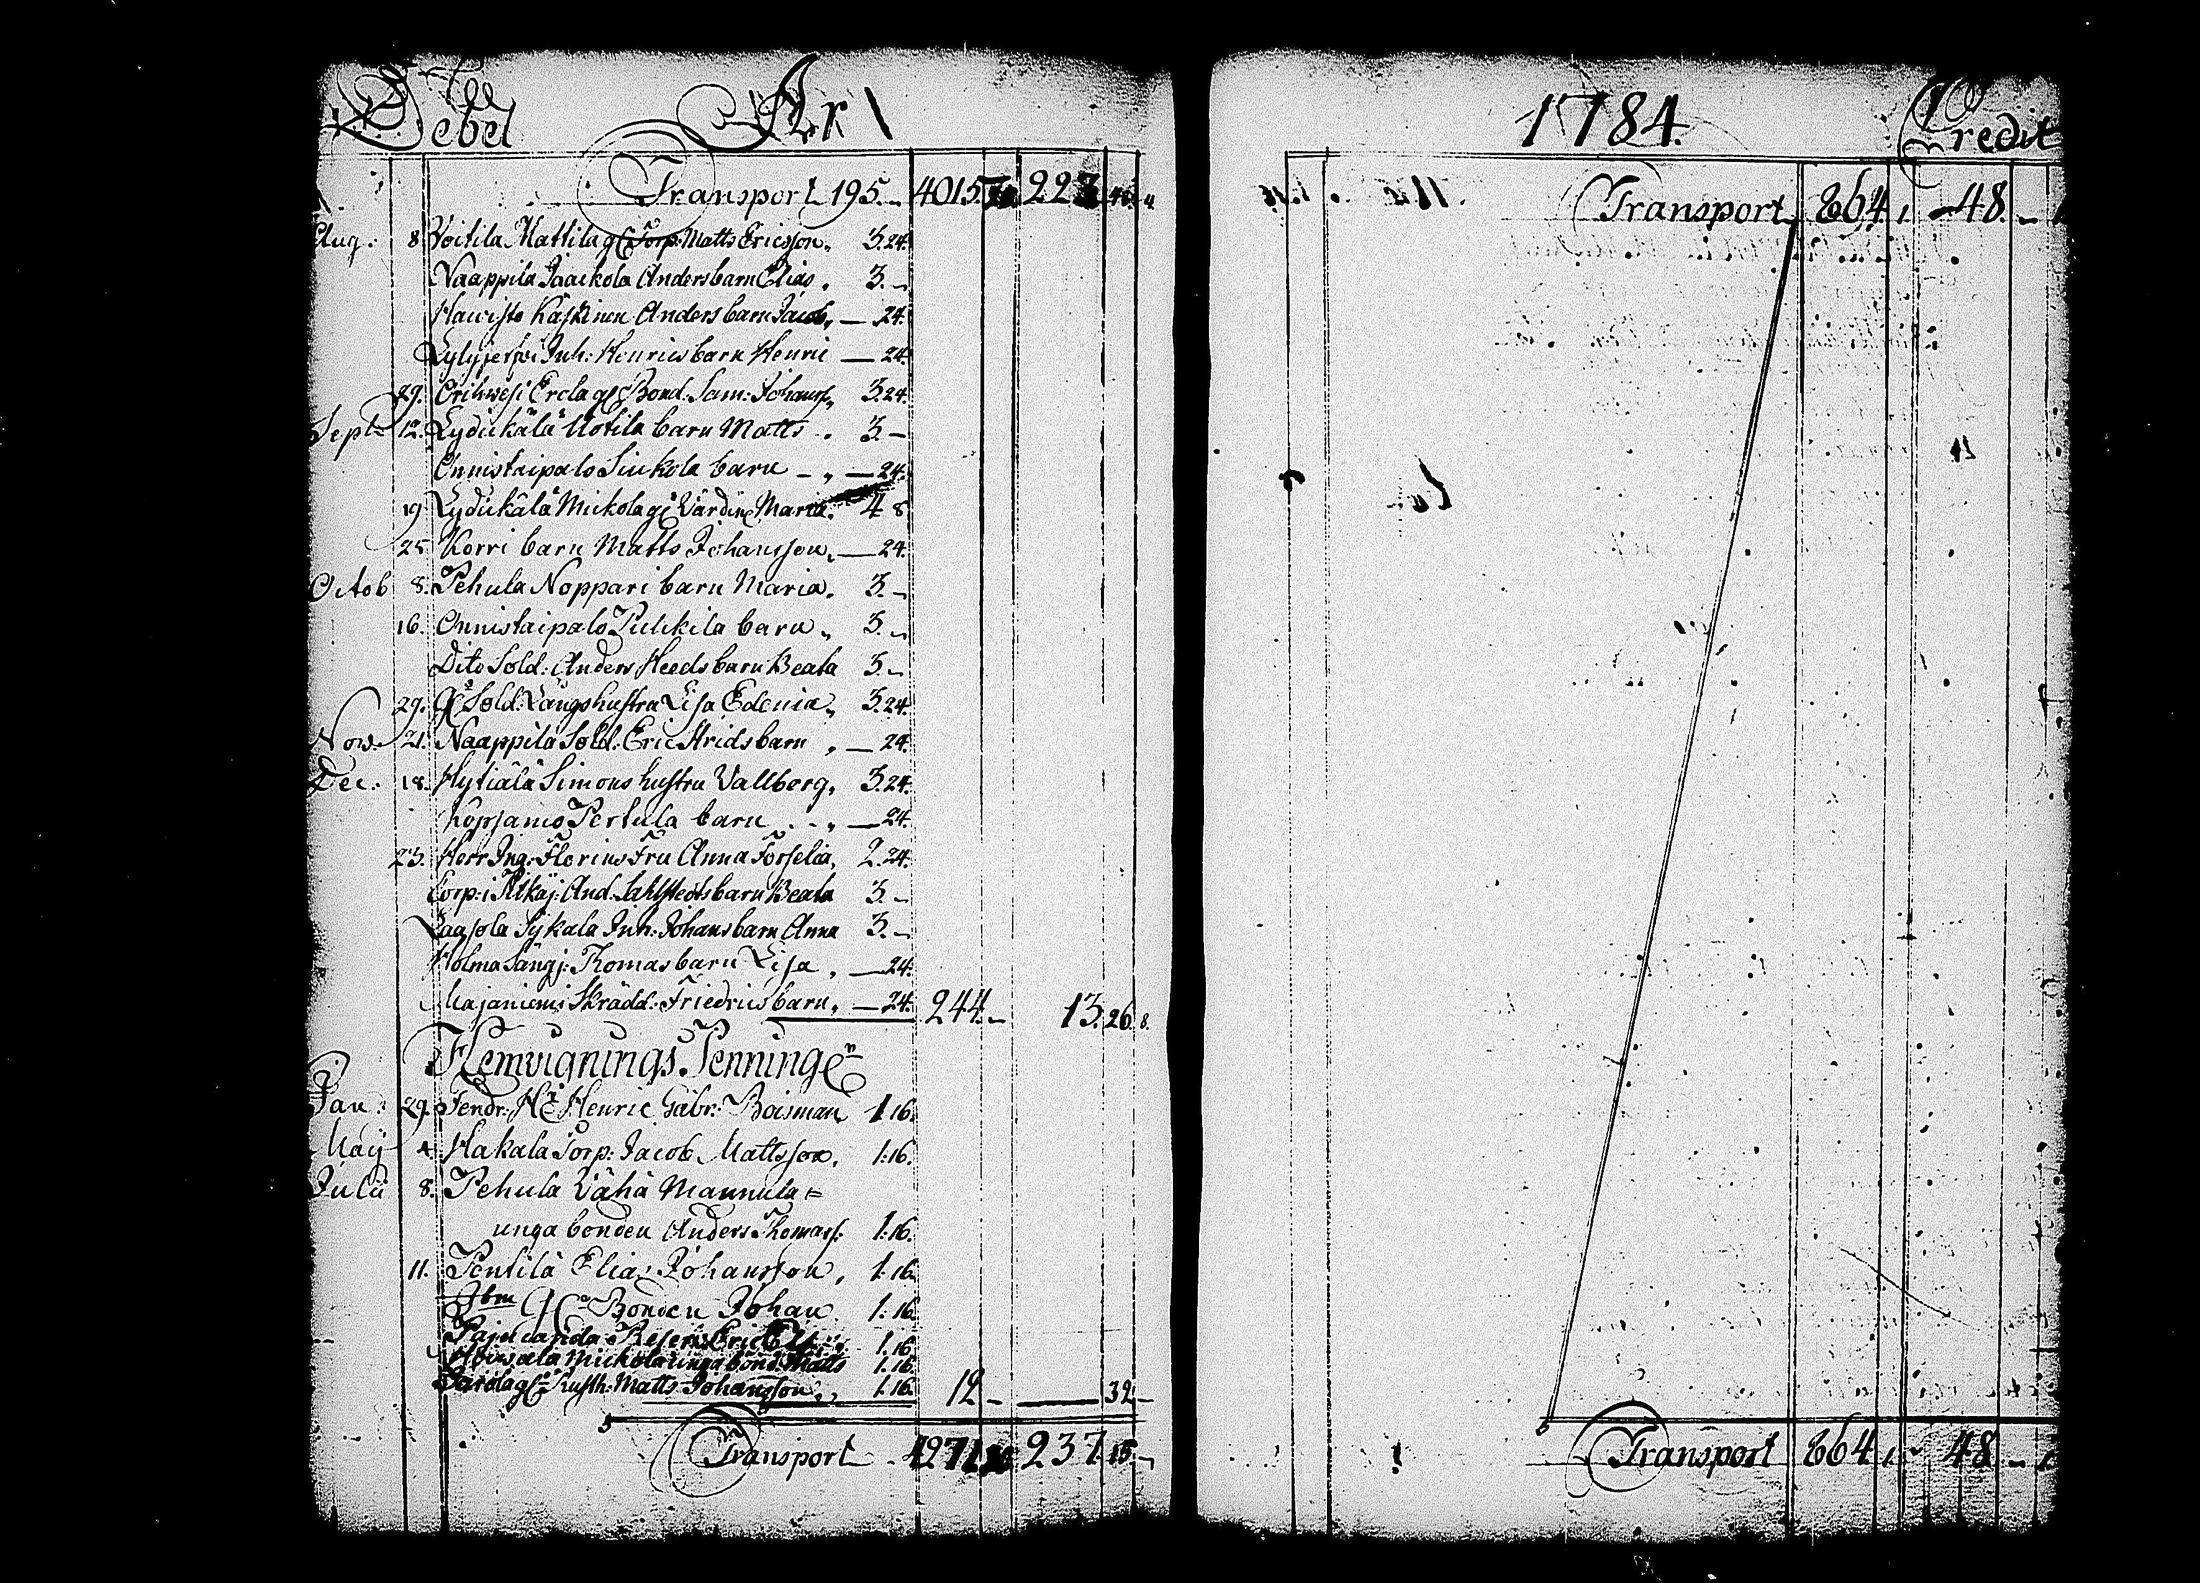 Debet År
Transport 195. 4015. 223
Aug: 8 Voitila Mattila gl Torp: Matts Ericsson. 3.24.
Naappila Jaackola Anders barn Elias. 3.–
Hawisto Käskinen Anders barn Jacob, – 24.
Lylyjerfvi Inh: Henrics barn Henric – 24.
29. Orihwesi Erola gl Bond: Sam: Johanss. 3.24.
Sept: 12. Lydickälä Uotila barn Matts. 3.–
Onnistaipalo Siukola barn – „ – 24.
19 Lydickälä Mickola gl Värdin Maria. 4 8
25 Korri barn Matts Johansson, – 24.
Octob 8. Pehula Noppari barn Maria. 3.–
16. Onnistaipalo Pukkila barn „ 3.–
Dito Sold: Anders Heeds barn Beata 3.–
29. gl Sold: Långs hustru Lisa Edenia, 3.24.
Nov. 21. Naappila Sold: Eric Strids barn, – 24.
Dec: 18. Hytiälä Simons hustru Vallberg, 3.24.
Kopsamo Pertula barn – „ – 24.
23. Herr Ing: Florins Fru Anna Forselia, 2.24.
Corp: i And: Sahlstedts barn Beata 3.–
Sykala Inh: Johans barn Anna 3.–
Holma Sångj: Thomas barn Lisa, – 24.
Majaniemi Skrädd: Friedrics barn, – 24. 244.– 13. 26. 8.
Hemvignings Penningen
Jan: 29. Fendr: Hr Henric Gabr: Boisman 1.16.
Maij 4. Hakala Torp: Jacob Mattsson, 1:16.
Julii 8. Pehula Vähä Mannula =
unga bonden Anders Thomass: 1:16.
11. Pentilä Elias Johansson, 1:16.
gla Bonden Johan 1:16.
Eric 1.16
Mickola unga bond: Matts 1.16.
Rusth: Matts Johansson 1.16. 12 – – 32 –
Transport 4271 237. 15.–
1784. Credit
Transport 864 1. – 48. –
Transport 864 1. – 48 –